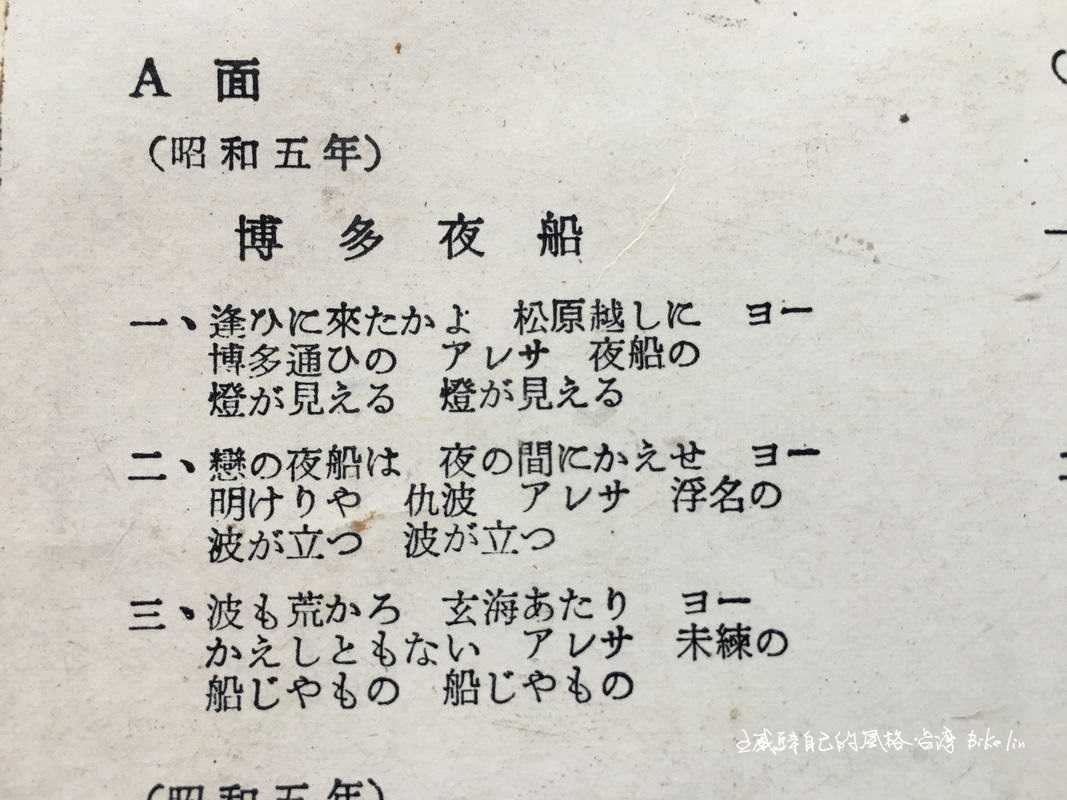 A 面
(昭和五年)
博多夜船
一、逢ひに來たかよ 松原越しに ヨー
博多通ひの アレサ 夜船の
燈が見える 燈が見える
二、戀の夜船は 夜の間にかえせ ヨー
明けりや 仇波 アレサ 浮名の
波が立つ 波が立つ
三、波も荒かろ 玄海あたり ヨー
かえしともない アレサ 未練の
船じやもの 船じやもの
(昭和五年)
自己的風格 Bike lin